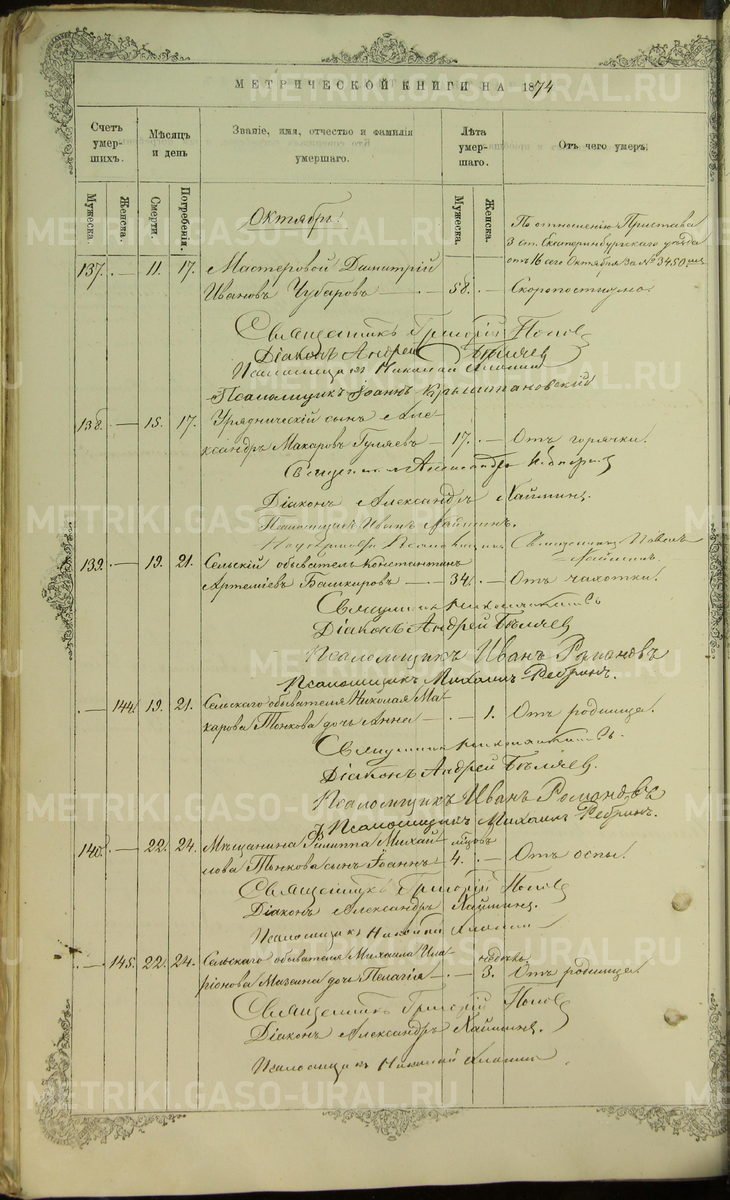 МЕТРИЧЕСКОЙ КНИГИ НА 1874
Счетъ умерших.
Мѣсяцъ и день
Званіе, имя, отчество и фамилія умершаго.
Лѣта умершаго.
Отъ чего умеръ.
Мужеска.
Женска.
Смерти.
Погребенія.
Мужеска.
Женска.
Октябрь.
По отношенію Пристава
3 ст. Екатеринбургскаго уѣзда
отъ 16 аго Октября за № 3450.
137. — 11. 17. Мастеровой Димитрій
Ивановъ Чубаровъ — 58. — Скоропостижно.
Священникъ Григорій Поповъ
Діаконъ Андрей Бѣляев
Псаломщикъ Николай
Псаломщикъ Іоаннъ Крыштановскій
138. — 15. 17. Урядническій сынъ Але-
ксандръ Макаровъ Гуляевъ — 17. — Отъ горячки.
Александръ
Діаконъ Александръ Хайминъ.
Псаломщикъ Иванъ
Священникъ
139. — 19. 21. Сельскій обыватель Константинъ
Артеміевъ Башкировъ — 34. — Отъ чахотки.
Священникъ
Діаконъ Андрей Бѣляев
Псаломщикъ Иванъ Романовъ
Псаломщикъ Михаилъ Ребринъ.
— 144. 19. 21. Сельскаго обывателя Николая Ма-
карова Тонкова дочь Анна — 1. Отъ родимца.
Священникъ
Діаконъ Андрей Бѣляев.
Псаломщикъ Иванъ Романовъ
Псаломщикъ Михаилъ Ребринъ.
140. — 22. 24. Мѣщанина Филиппа Михай-
лова Тонкова сынъ Іоаннъ — 4. — Отъ оспы.
Священникъ Григорій Поповъ
Діаконъ Александръ Хайминъ.
Псаломщикъ Николай
— 145. 22. 24. Сельскаго обывателя Михаила Ила-
ріонова Мазеина дочь Пелагія — недѣль 3. Отъ родимца.
Священникъ Григорій Поповъ
Діаконъ Александръ Хайминъ.
Псаломщикъ Николай
METRIKI.GASO-URAL.RU